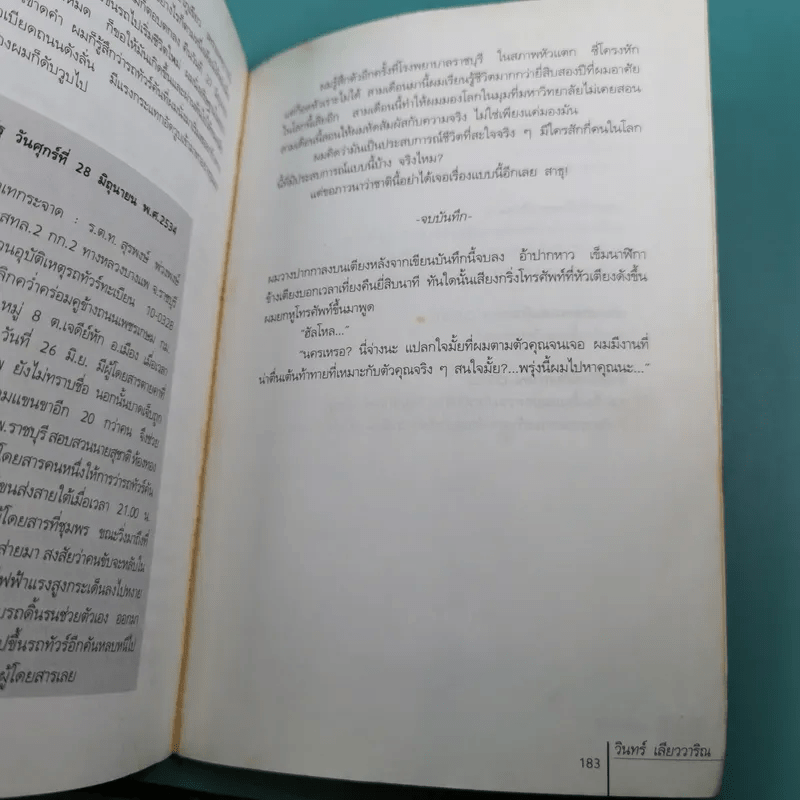 หมด ก็ขอให้มันเกิดขึ้นและผ่านไป
ผมก็รู้สึกว่ารถทัวร์คันที่ผม
เบียดถนนดังลั่น มีแรงกระแทก
งผมก็ดับวูบไป
วันศุกร์ที่ 28 มิถุนายน พ.ศ.2534
เทกระจาด : ร.ต.ท. สุรพงษ์ พ่วงพงษ์
สทล.2 กก.2 ทางหลวงบางแพ จ.ราชบุรี
วนอุบัติเหตุรถทัวร์ทะเบียน 10-0328
ลิกคว่ำคร่อมคูข้างถนนเพชรเกษม กม.
หมู่ 8 ต.เจดีย์หัก อ.เมือง เมื่อเวลา
วันที่ 26 มิ.ย. มีผู้โดยสารตายคาที่
ยังไม่ทราบชื่อ นอกนั้นบาดเจ็บถูก
มแขนขาอีก 20 กว่าคน จึงช่วย
พ.ราชบุรี สอบสวนนายสุชาติ ห้องทอง
โดยสารคนหนึ่งให้การว่ารถทัวร์คัน
ขนส่งสายใต้เมื่อเวลา 21.00 น.
ผู้โดยสารที่ชุมพร ขณะวิ่งมาถึงที่
ส่ายมา สงสัยว่าคนขับจะหลับใน
ไฟฟ้าแรงสูงกระเด็นลงไปหงาย
บรถดิ้นรนช่วยตัวเอง ออกมา
ปขึ้นรถทัวร์อีกคันหลบหนีไป
ผู้โดยสารเลย
ผมรู้สึกตัวอีกครั้งที่โรงพยาบาลราชบุรี ในสภาพหัวแตก ซี่โครงหัก
แต่ก็อดหัวเราะไม่ได้ สามเดือนมานี้ผมเรียนรู้ชีวิตมากกว่ายี่สิบสองปีที่ผมอาศัย
ในโลกนี้เสียอีก สามเดือนนี้ทำให้ผมมองโลกในมุมที่มหาวิทยาลัยไม่เคยสอน
สามเดือนนี้สอนให้ผมหัดสัมผัสกับความจริง ไม่ใช่เพียงแค่มองมัน
ผมคิดว่ามันเป็นประสบการณ์ชีวิตที่สะใจจริง ๆ มีใครสักกี่คนในโลก
นี้ที่มีประสบการณ์แบบนี้บ้าง จริงไหม?
แต่ขอภาวนาว่าชาตินี้อย่าได้เจอเรื่องแบบนี้อีกเลย สาธุ!
-จบบันทึก-
ผมวางปากกาลงบนเตียงหลังจากเขียนบันทึกนี้จบลง อ้าปากหาว เข็มนาฬิกา
ข้างเตียงบอกเวลาเที่ยงคืนยี่สิบนาที ทันใดนั้นเสียงกริ่งโทรศัพท์ที่หัวเตียงดังขึ้น
ผมยกหูโทรศัพท์ขึ้นมาพูด
"ฮัลโหล..."
"นครเหรอ? นี่จ่างนะ แปลกใจมั้ยที่ผมตามตัวคุณจนเจอ ผมมีงานที่
น่าตื่นเต้นท้าทายที่เหมาะกับตัวคุณจริง ๆ สนใจมั้ย?...พรุ่งนี้ผมไปหาคุณนะ..."
183
วินทร์ เลียววาริณ